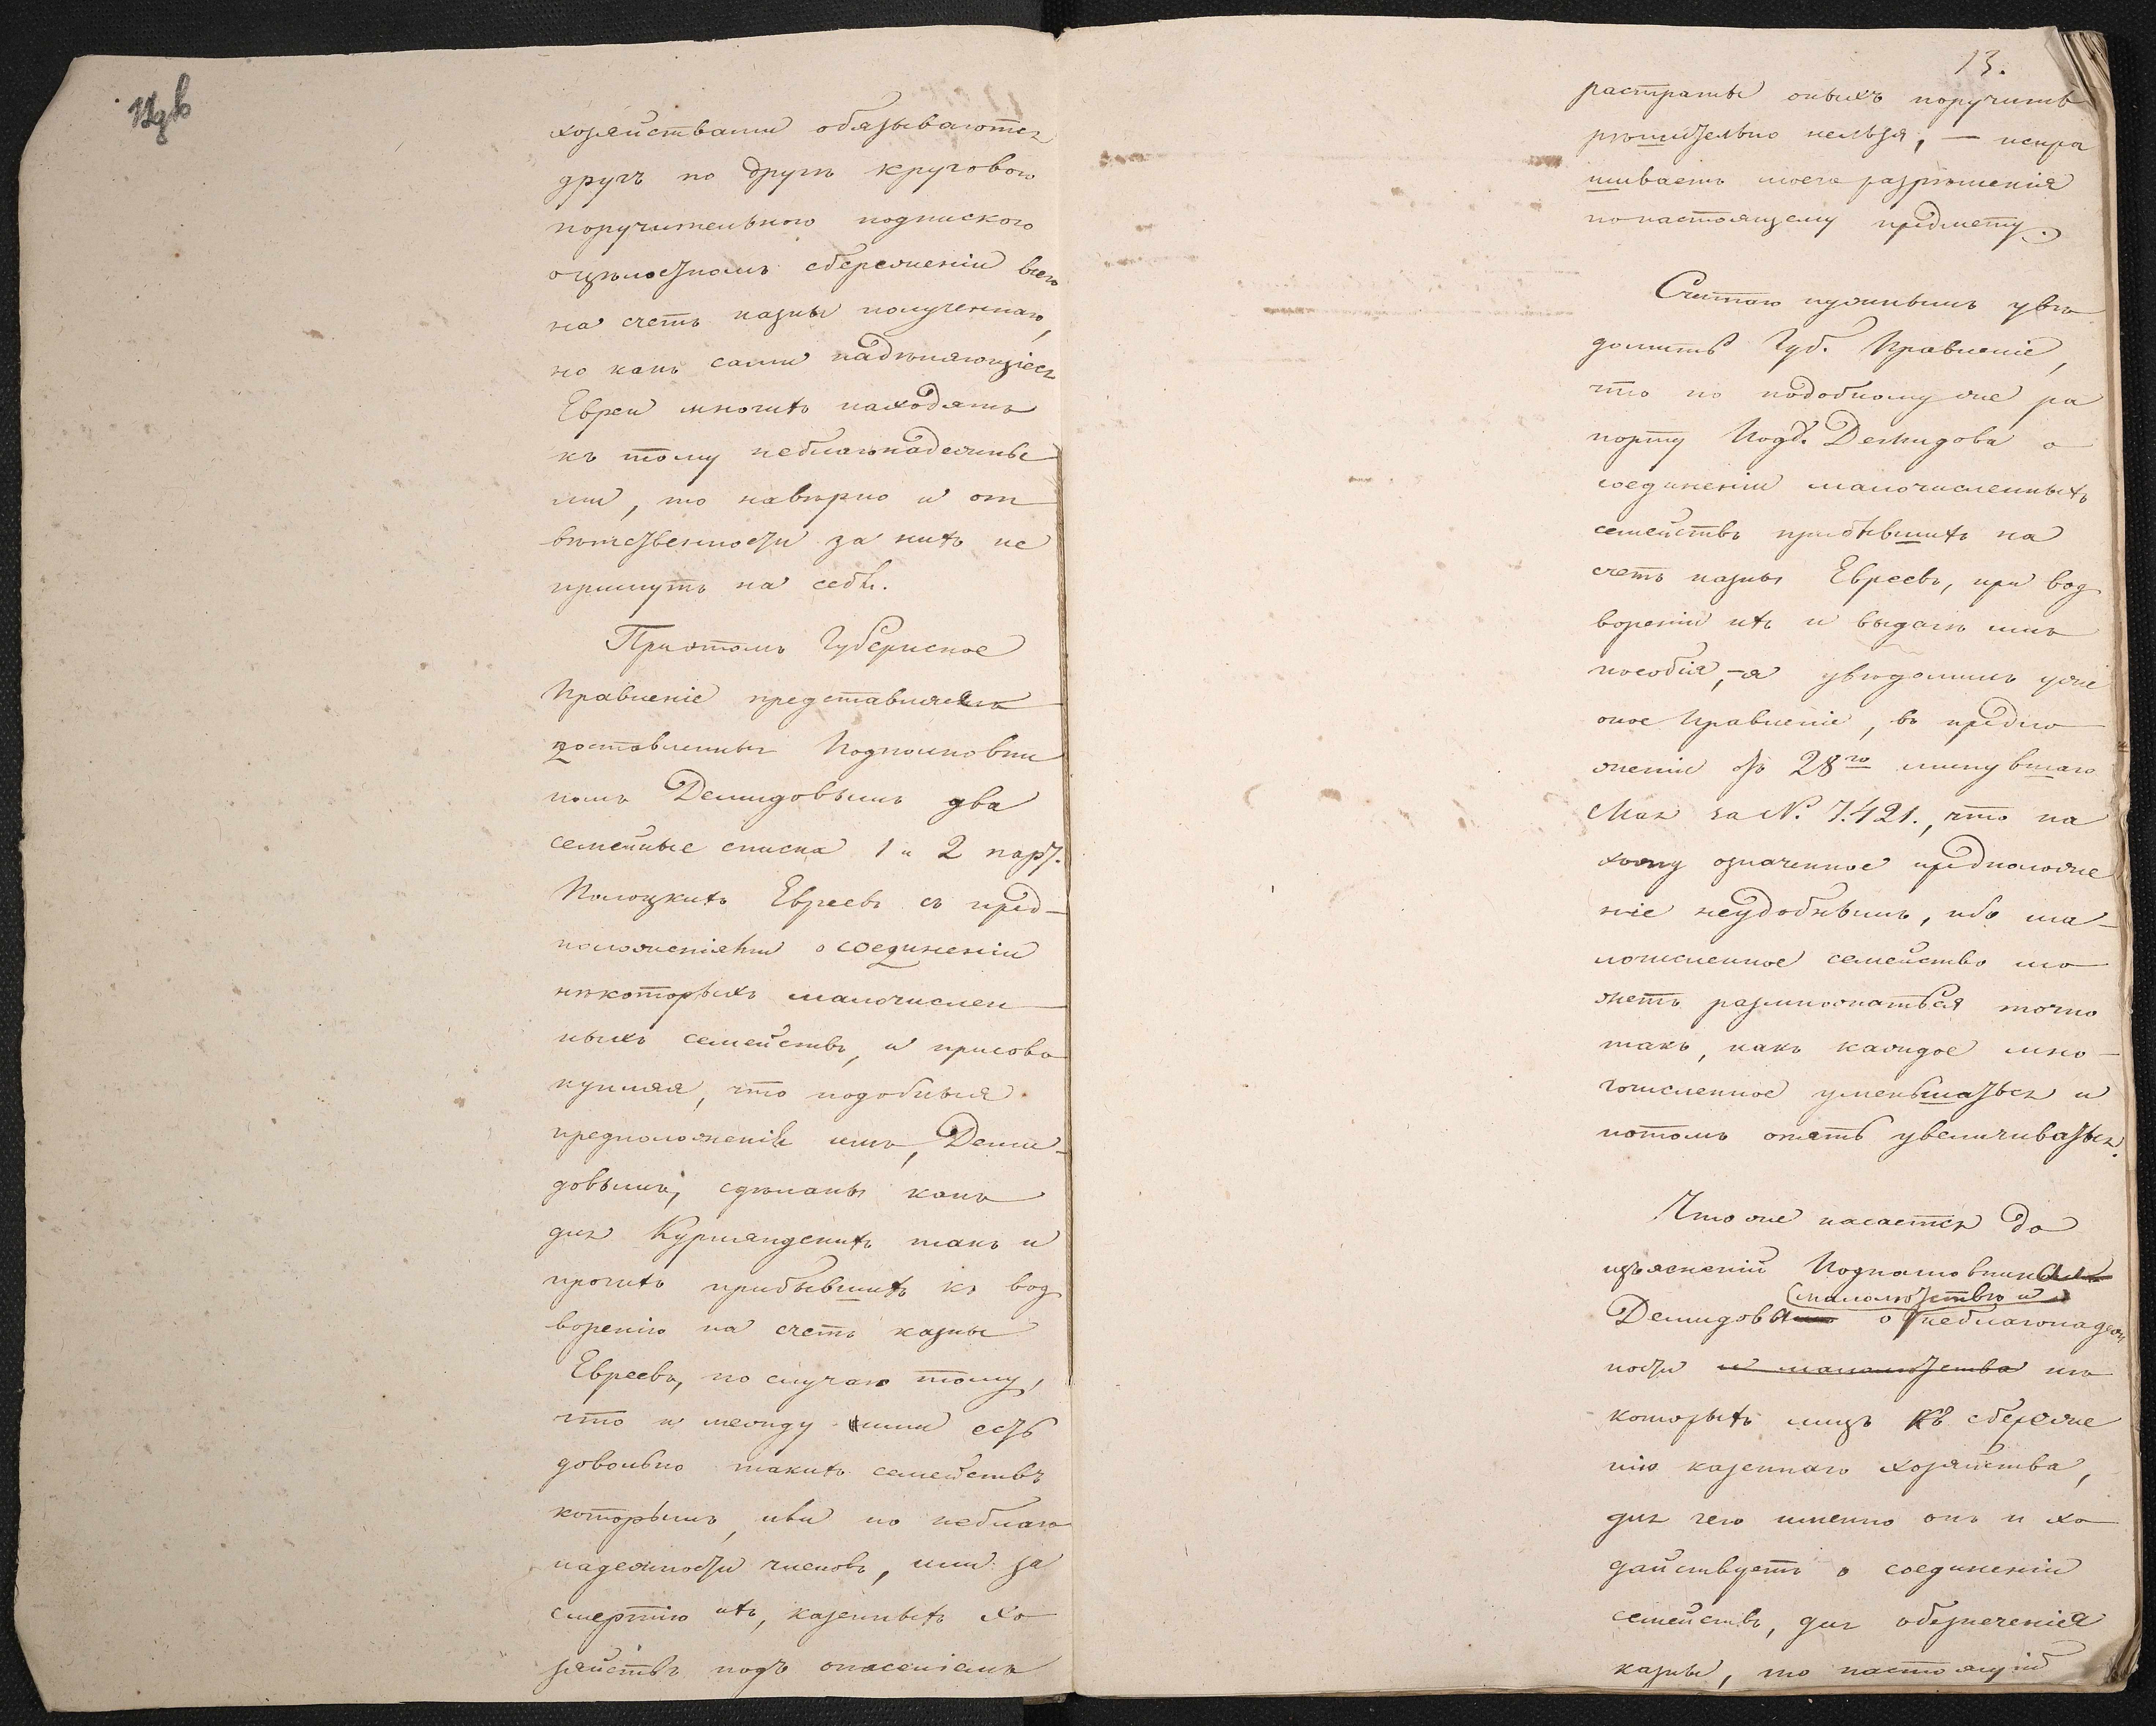 хозяйствами обязываются
другъ по другѣ круговою
поручительною подпискою
о цѣлостномъ сбереженіи всего
на счетъ казны полученнаго,
но какъ сами надѣляющіеся
Евреи многихъ находятъ
къ тому неблагонадежны
ми, то навѣрно и от
вѣтственности за нихъ не
примутъ на себя.
При этомъ Губернское
Правленіе представляя
доставленные Подполковни
комъ Демидовымъ два
семейные списка 1 и 2 парт.
Полоцкихъ Евреевъ съ пред-
положеніями о соединеніи
нѣкоторыхъ малочислен
ныхъ семействъ, и присово
купляя, что подобныя
предположенія имъ, Деми-
довымъ, сдѣланы какъ
для Курляндскихъ такъ и
прочихъ прибывшихъ къ вод
воренію на счетъ казны
Евреевъ, по случаю тому,
что и между ими есть
довольно такихъ семействъ
которымъ, или по неблаго
надежности членовъ, или за
смертію ихъ, казенныхъ хо
зяйствъ подъ опасеніемъ
13.
растраты оныхъ поручить
рѣшительно нельзя, — испра
шиваетъ моего разрѣшенія
по настоящему предмету.
Считаю нужнымъ увѣ
домить Губ. Правленіе,
что по подобному же ра
порту Подп. Демидова о
соединеніи малочисленныхъ
семействъ прибывшихъ на
счетъ казны Евреевъ, при вод
вореніи ихъ и выдачѣ имъ
пособія, – я увѣдомилъ уже
оное Правленіе, въ предло
женіи отъ 28го минувшаго
Мая за №. 7.421., что на
хожу означенное предположе
ніе неудобнымъ, ибо ма-
лочисленное семейство мо
жетъ размножаться точно
такъ, какъ каждое мно-
гочисленное уменьшаться и
потомъ опять увеличиваться.
Что же касается до
изъясненій Подполковника
малолѣтствѣ и
Демидова о неблагонадеж
ности и малолѣтства нѣ
которыхъ лицъ къ сбереже
нію казеннаго хозяйства,
для чего именно онъ и хо
датайствуетъ о соединеніи
семействъ, для обезпеченія
казны, то настоящій